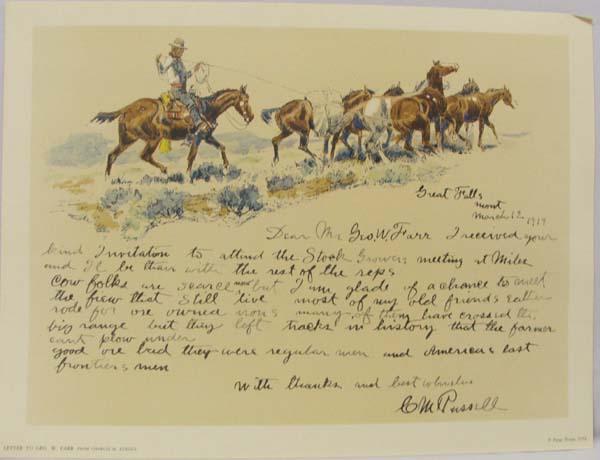 Great Falls
Mont
March 12 1919
Dear Mr Geo. W. Farr I received your
kind Invitation to attend the Stock Growers meeting at Miles
and Il be thair with the rest of the reps
Cow folks are scarce now but I am glade of a chance to meet
the few that still live most of my old friends eather
rode for ore owned irons many of them have crossed the
big range but they left tracks in history that the farmer
cant plow under
good ore bad they were regular men and Americas last
frontiers men
With thanks and best whishes
CM Russell
LETTER TO GEO. W. FARR FROM CHARLES M. RUSSELL